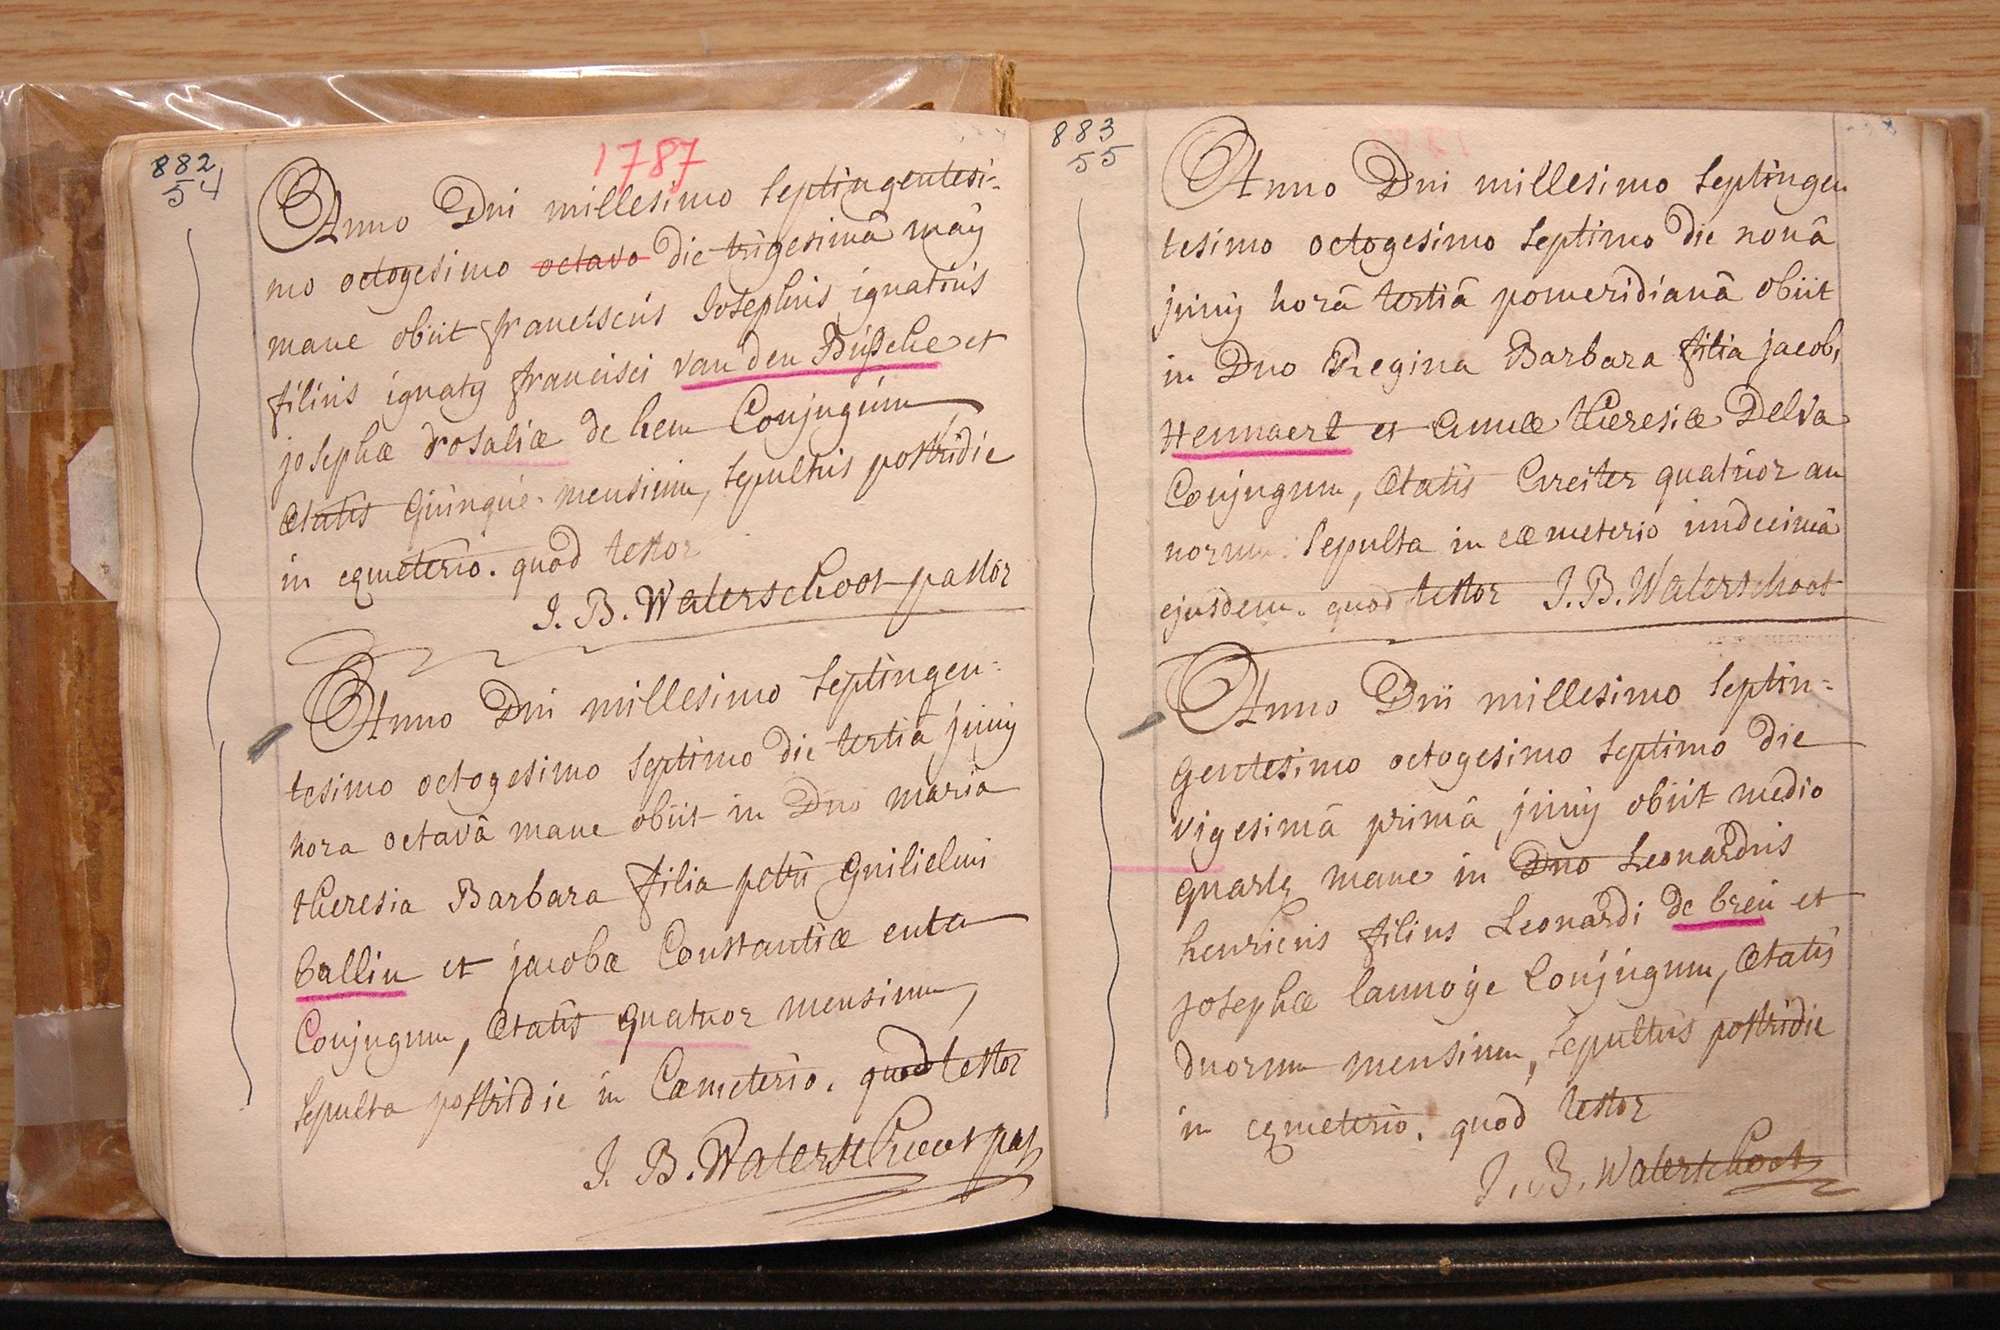 882
54
1787
Anno Dni millesimo septingentesi-
mo octogesimo octavo die trigesimâ maÿ
mane obiit franciscus Josephus ignatius
filius ignatÿ francisci van den Bussche et
josephæ rosaliæ de hem Conjugum
ætatis quinque mensium, sepultus postridie
in cæmeterio. quod testor
J. B. Waterschoot pastor
Anno Dni millesimo septingen-
tesimo octogesimo septimo die tertiâ junÿ
hora octavâ mane obiit in Dno maria
theresia Barbara filia petri Guilielmi
ballin et jacobæ Constantiæ enta
Conjugum, ætatis quatuor mensium,
sepulta postridie in Cæmeterio. quod testor
J. B. Waterschoot past
883
55
Anno Dni millesimo septingen
tesimo octogesimo septimo die nonâ
junÿ horâ tertiâ pomeridianâ obiit
in Dno Regina Barbara filia jacobi
Hennaert et annæ theresiæ Delva
Conjugum, ætatis circiter quatuor an
norum. sepulta in cæmeterio undecimâ
ejusdem. quod testor J. B. Waterschoot
Anno Dni millesimo septin=
gentesimo octogesimo septimo die
vigesimâ primâ junÿ obiit medio
quartæ mane in Dno Leonardus
henricus filius Leonardi de breu et
josephæ lannoÿe Conjugum, ætatis
duorum mensium, sepultus postridie
in cæmeterio. quod testor
J. B. Waterschoot